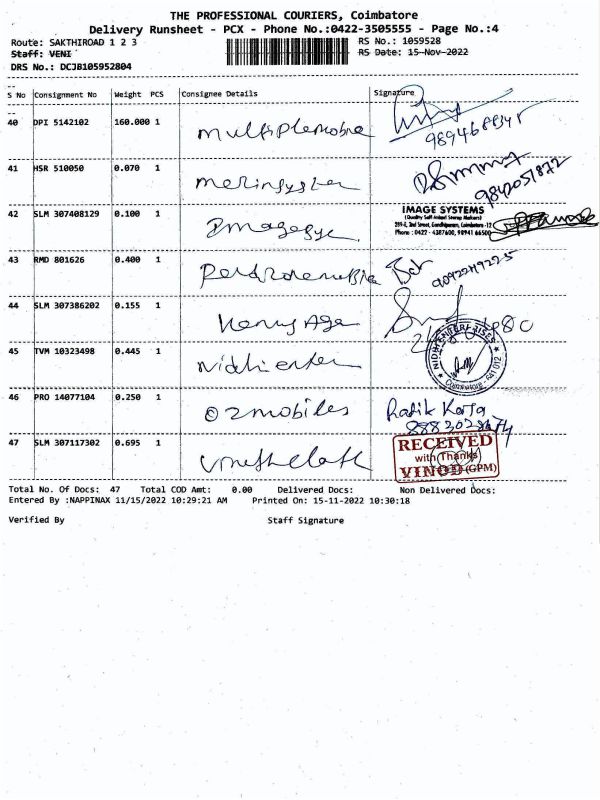 THE PROFESSIONAL COURIERS, Coimbatore
Delivery Runsheet - PCX - Phone No.:0422-3505555 - Page No.:4
Route: SAKTHIROAD 1 2 3 RS No.: 1059528
Staff: VENI RS Date: 15-Nov-2022
DRS No.: DCJB105952804
S No Consignment No Weight PCS Consignee Details Signature
40 DPI 5142102 160.000 1 multiplemobne
41 HSR 510050 0.070 1
9842051872
42 SLM 307408129 0.100 1
IMAGE SYSTEMS
(Quality Self-Inked Stamp Makers)
Phone : 0422 - 4387600, 98941 66500
43 RMD 801626 0.400 1
44 SLM 307386202 0.155 1 Venus Age
45 TVM 10323498 0.445 1 nidhi enter
NIDHI ENTERPRISES
Coimbatore - 641 012
46 PRO 14077104 0.250 1 O2mobiles
47 SLM 307117302 0.695 1
RECEIVED
with Thanks
VINOD (GPM)
Total No. Of Docs: 47 Total COD Amt: 0.00 Delivered Docs: Non Delivered Docs:
Entered By :NAPPINAX 11/15/2022 10:29:21 AM Printed On: 15-11-2022 10:30:18
Verified By Staff Signature